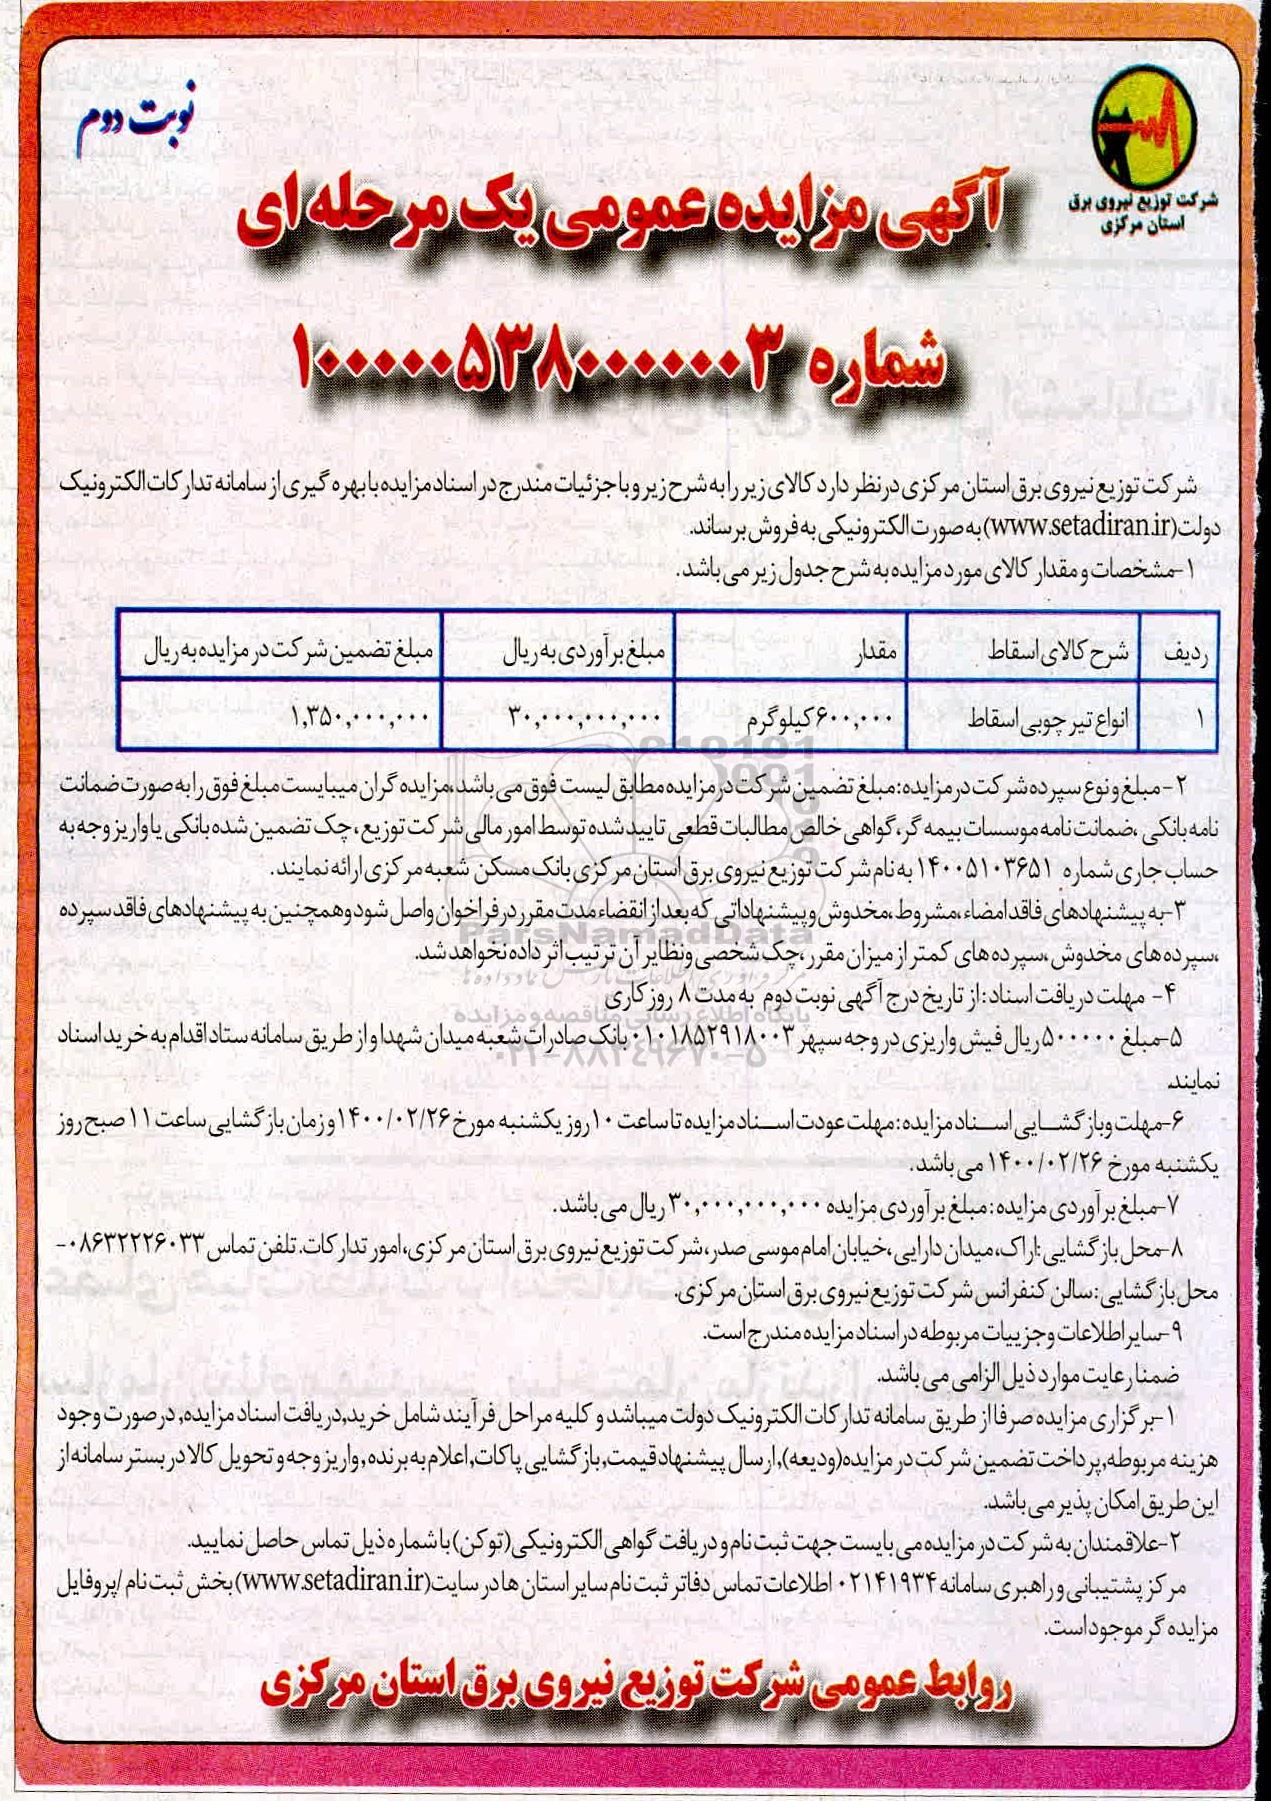 نوبت دوم
شرکت توزیع نیروی برق
استان مرکزی
آگهی مزایده عمومی یک مرحله ای
شماره ۱۰۰۰۰۰۵۳۸۰۰۰۰۰۰۳
شرکت توزیع نیروی برق استان مرکزی در نظر دارد کالای زیر را به شرح زیر و با جزئیات مندرج در اسناد مزایده با بهره گیری از سامانه تدارکات الکترونیک
دولت(www.setadiran.ir) به صورت الکترونیکی به فروش برساند.
۱-مشخصات و مقدار کالای مورد مزایده به شرح جدول زیر می باشد.
ردیف شرح کالای اسقاط مقدار مبلغ برآوردی به ریال مبلغ تضمین شرکت در مزایده به ریال
۱ انواع تیر چوبی اسقاط ۶۰۰,۰۰۰کیلوگرم ۳۰,۰۰۰,۰۰۰,۰۰۰ ۱,۳۵۰,۰۰۰,۰۰۰
۲-مبلغ و نوع سپرده شرکت در مزایده: مبلغ تضمین شرکت در مزایده مطابق لیست فوق می باشد،مزایده گران میبایست مبلغ فوق را به صورت ضمانت
نامه بانکی ،ضمانت نامه موسسات بیمه گر،گواهی خالص مطالبات قطعی تایید شده توسط امور مالی شرکت توزیع، چک تضمین شده بانکی یا واریز وجه به
حساب جاری شماره ۱۴۰۰۵۱۰۳۶۵۱ به نام شرکت توزیع نیروی برق استان مرکزی بانک مسکن شعبه مرکزی ارائه نمایند.
۳-به پیشنهادهای فاقد امضاء،مشروط،مخدوش و پیشنهاداتی که بعد از انقضاء مدت مقرر در فراخوان واصل شود و همچنین به پیشنهادهای فاقد سپرده
،سپرده های مخدوش ،سپرده های کمتر از میزان مقرر،چک شخصی و نظایر آن ترتیب اثر داده نخواهد شد.
۴- مهلت دریافت اسناد: از تاریخ درج آگهی نوبت دوم به مدت ۸ روز کاری
۵-مبلغ ۵۰۰۰۰۰ ریال فیش واریزی در وجه سپهر ۰۱۰۱۸۵۲۹۱۸۰۰۳ بانک صادرات شعبه میدان شهدا و از طریق سامانه ستاد اقدام به خرید اسناد
نمایند.
۶-مهلت و بازگشـایی اسـناد مزایده: مهلت عودت اسـناد مزایده تا ساعت ۱۰ روز یکشنبه مورخ ۱۴۰۰/۰۲/۲۶ و زمان بازگشایی ساعت ۱۱ صبح روز
یکشنبه مورخ ۱۴۰۰/۰۲/۲۶ می باشد.
۷-مبلغ برآوردی مزایده: مبلغ برآوردی مزایده ۳۰,۰۰۰,۰۰۰,۰۰۰ ریال می باشد.
۸-محل بازگشایی :اراک، میدان دارایی، خیابان امام موسی صدر، شرکت توزیع نیروی برق استان مرکزی، امور تدارکات. تلفن تماس ۰۸۶۳۲۲۲۶۰۳۳-
محل بازگشایی: سالن کنفرانس شرکت توزیع نیروی برق استان مرکزی.
۹-سایر اطلاعات و جزییات مربوطه در اسناد مزایده مندرج است.
ضمنا رعایت موارد ذیل الزامی می باشد.
۱-برگزاری مزایده صرفا از طریق سامانه تدارکات الکترونیک دولت میباشد و کلیه مراحل فرآیند شامل خرید,دریافت اسناد مزایده, در صورت وجود
هزینه مربوطه,پرداخت تضمین شرکت در مزایده(ودیعه),ارسال پیشنهاد قیمت,بازگشایی پاکات,اعلام به برنده,واریز وجه و تحویل کالا در بستر سامانه از
این طریق امکان پذیر می باشد.
۲-علاقمندان به شرکت در مزایده می بایست جهت ثبت نام و دریافت گواهی الکترونیکی (توکن) با شماره ذیل تماس حاصل نمایید.
مرکز پشتیبانی و راهبری سامانه ۰۲۱۴۱۹۳۴ اطلاعات تماس دفاتر ثبت نام سایر استان ها در سایت (www.setadiran.ir) بخش ثبت نام /پروفایل
مزایده گر موجود است.
روابط عمومی شرکت توزیع نیروی برق استان مرکزی
ParsNamadData
پایگاه اطلاع رسانی مناقصه و مزایده
۰۲۱-۸۸۳۴۹۶۷۰-۵